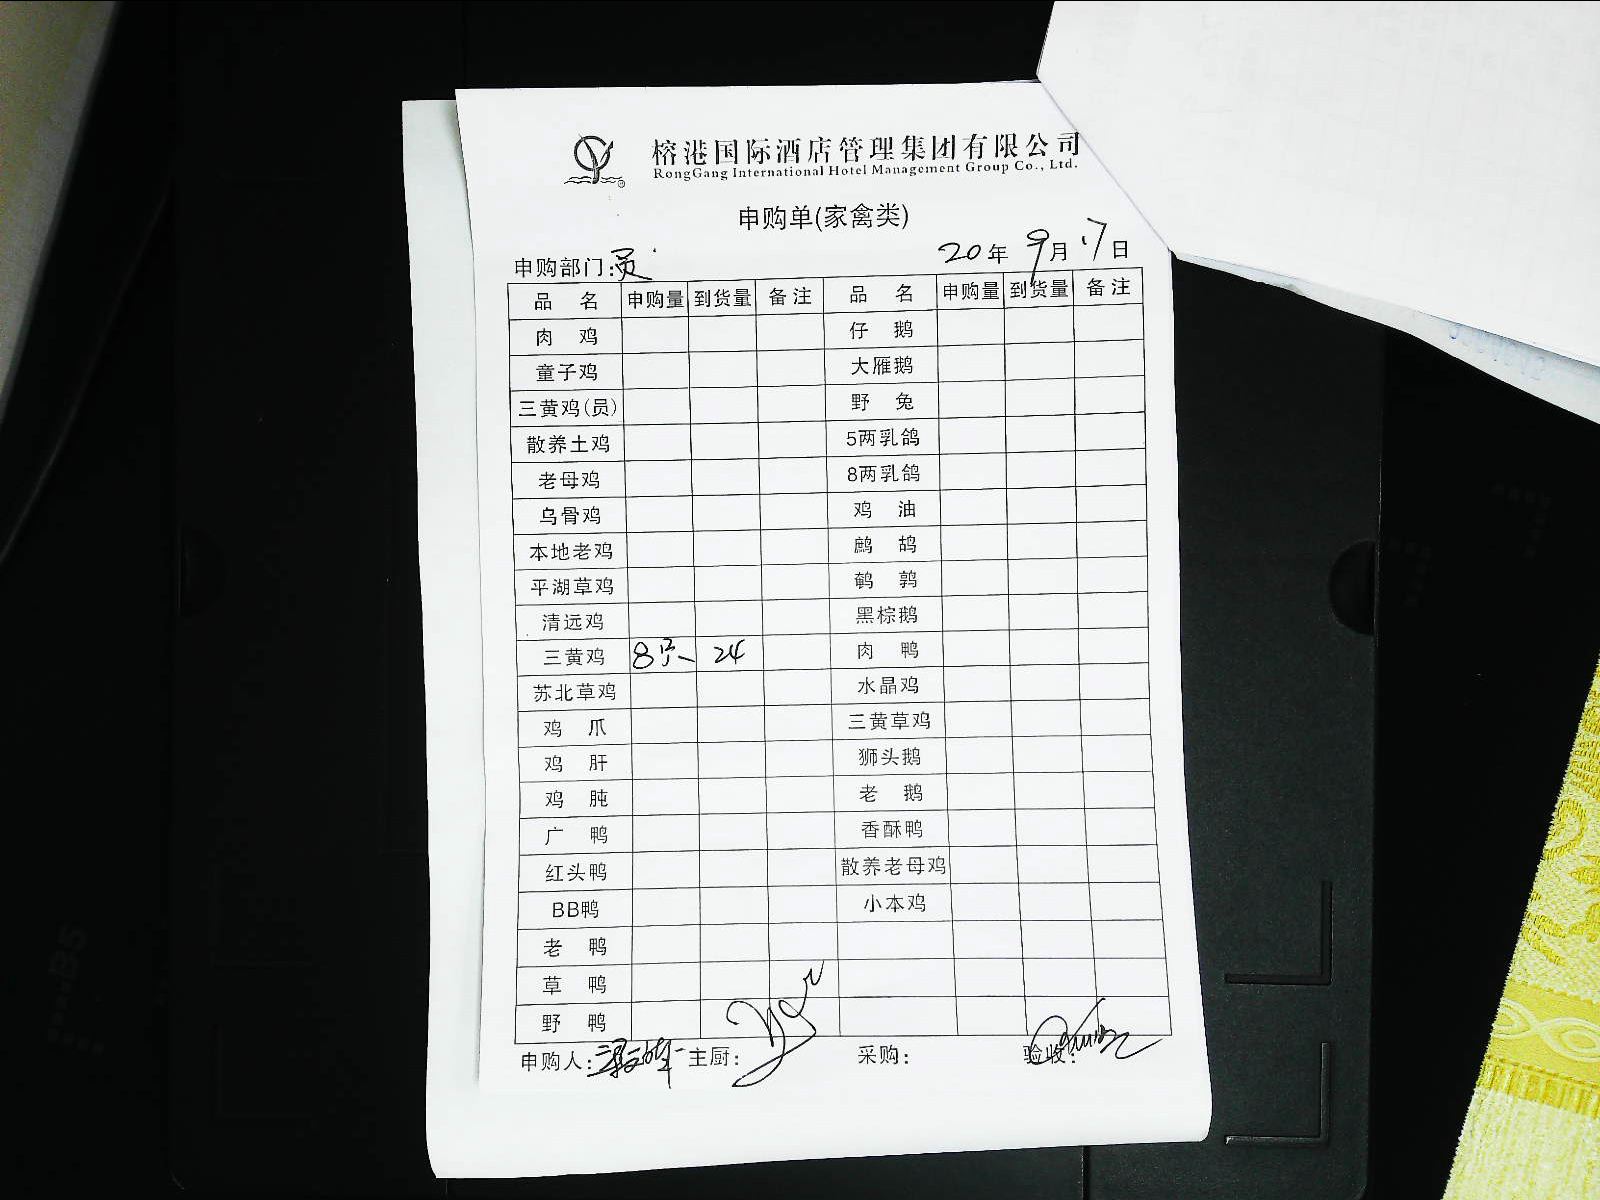 榕港国际酒店管理集团有限公司
RongGang International Hotel Management Group Co., Ltd.
申购单(家禽类)
申购部门:员 20年9月17日
品 名 申购量 到货量 备注 品 名 申购量 到货量 备注
肉 鸡 仔 鹅
童子鸡 大雁鹅
三黄鸡(员) 野 兔
散养土鸡 5两乳鸽
老母鸡 8两乳鸽
乌骨鸡 鸡 油
本地老鸡 鹧 鸪
平湖草鸡 鹌 鹑
清远鸡 黑棕鹅
三黄鸡 8只 24 肉 鸭
苏北草鸡 水晶鸡
鸡 爪 三黄草鸡
鸡 肝 狮头鹅
鸡 肫 老 鹅
广 鸭 香酥鸭
红头鸭 散养老母鸡
BB鸭 小本鸡
老 鸭
草 鸭
野 鸭
申购人: 主厨: 采购: 验收: